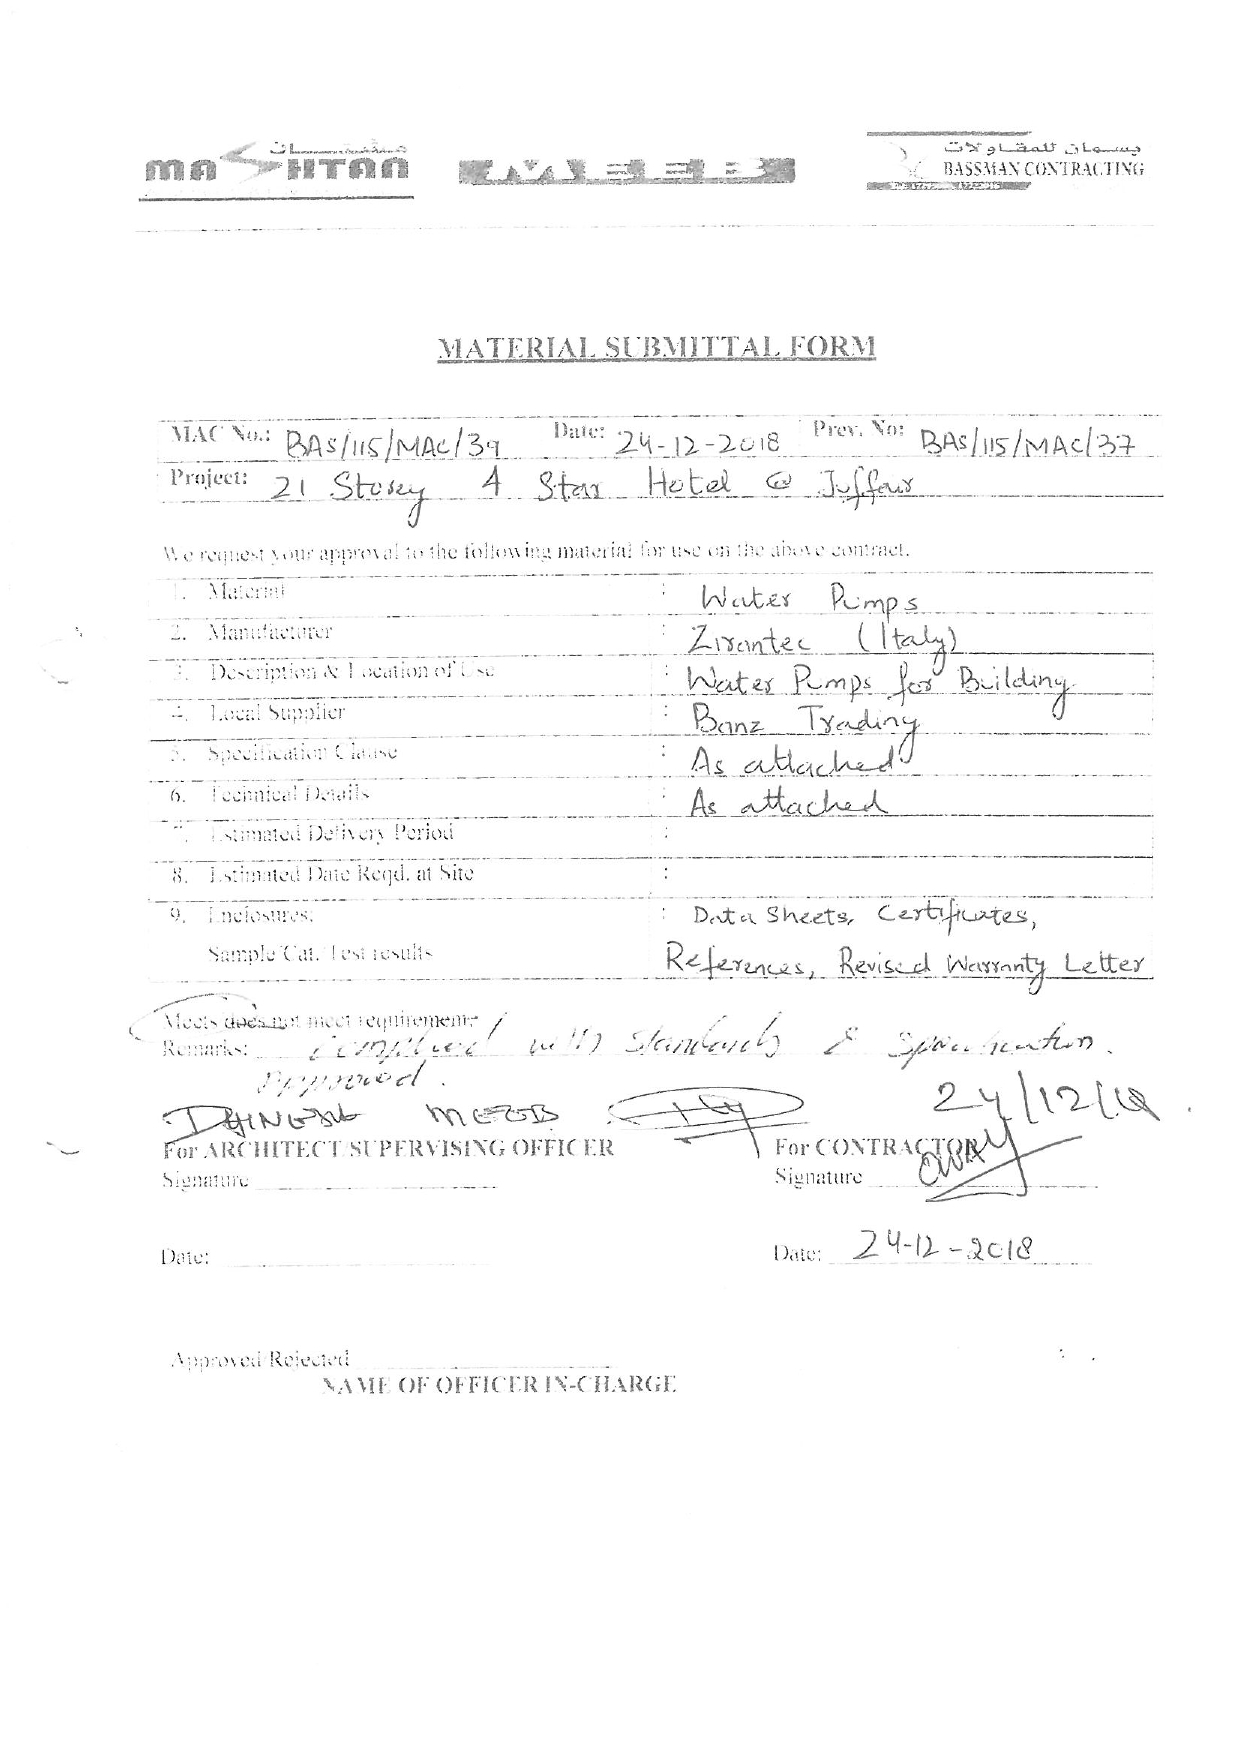 مشتان
MASHTAN
MEEB
بسمان للمقاولات
BASSMAN CONTRACTING
MATERIAL SUBMITTAL FORM
MAC No.: BAS/115/MAC/39 Date: 24-12-2018 Prev. No: BAS/115/MAC/37
Project: 21 Storey 4 Star Hotel @ Juffair
We request your approval to the following material for use on the above contract.
1. Material : Water Pumps
2. Manufacturer : Zirantec (Italy)
3. Description & Location of Use : Water Pumps for Building
4. Local Supplier : Banz Trading
5. Specification Clause : As attached
6. Technical Details : As attached
7. Estimated Delivery Period :
8. Estimated Date Reqd. at Site :
9. Enclosures: : Data Sheets, Certificates,
Sample/Cat. Test results References, Revised Warranty Letter
Meets does not meet requirements
Remarks: Complied with Standards & Specification.
Approved.
MEEB 24/12/18
For ARCHITECT/SUPERVISING OFFICER For CONTRACTOR
Signature Signature
Date: Date: 24-12-2018
Approved/Rejected
NAME OF OFFICER IN-CHARGE